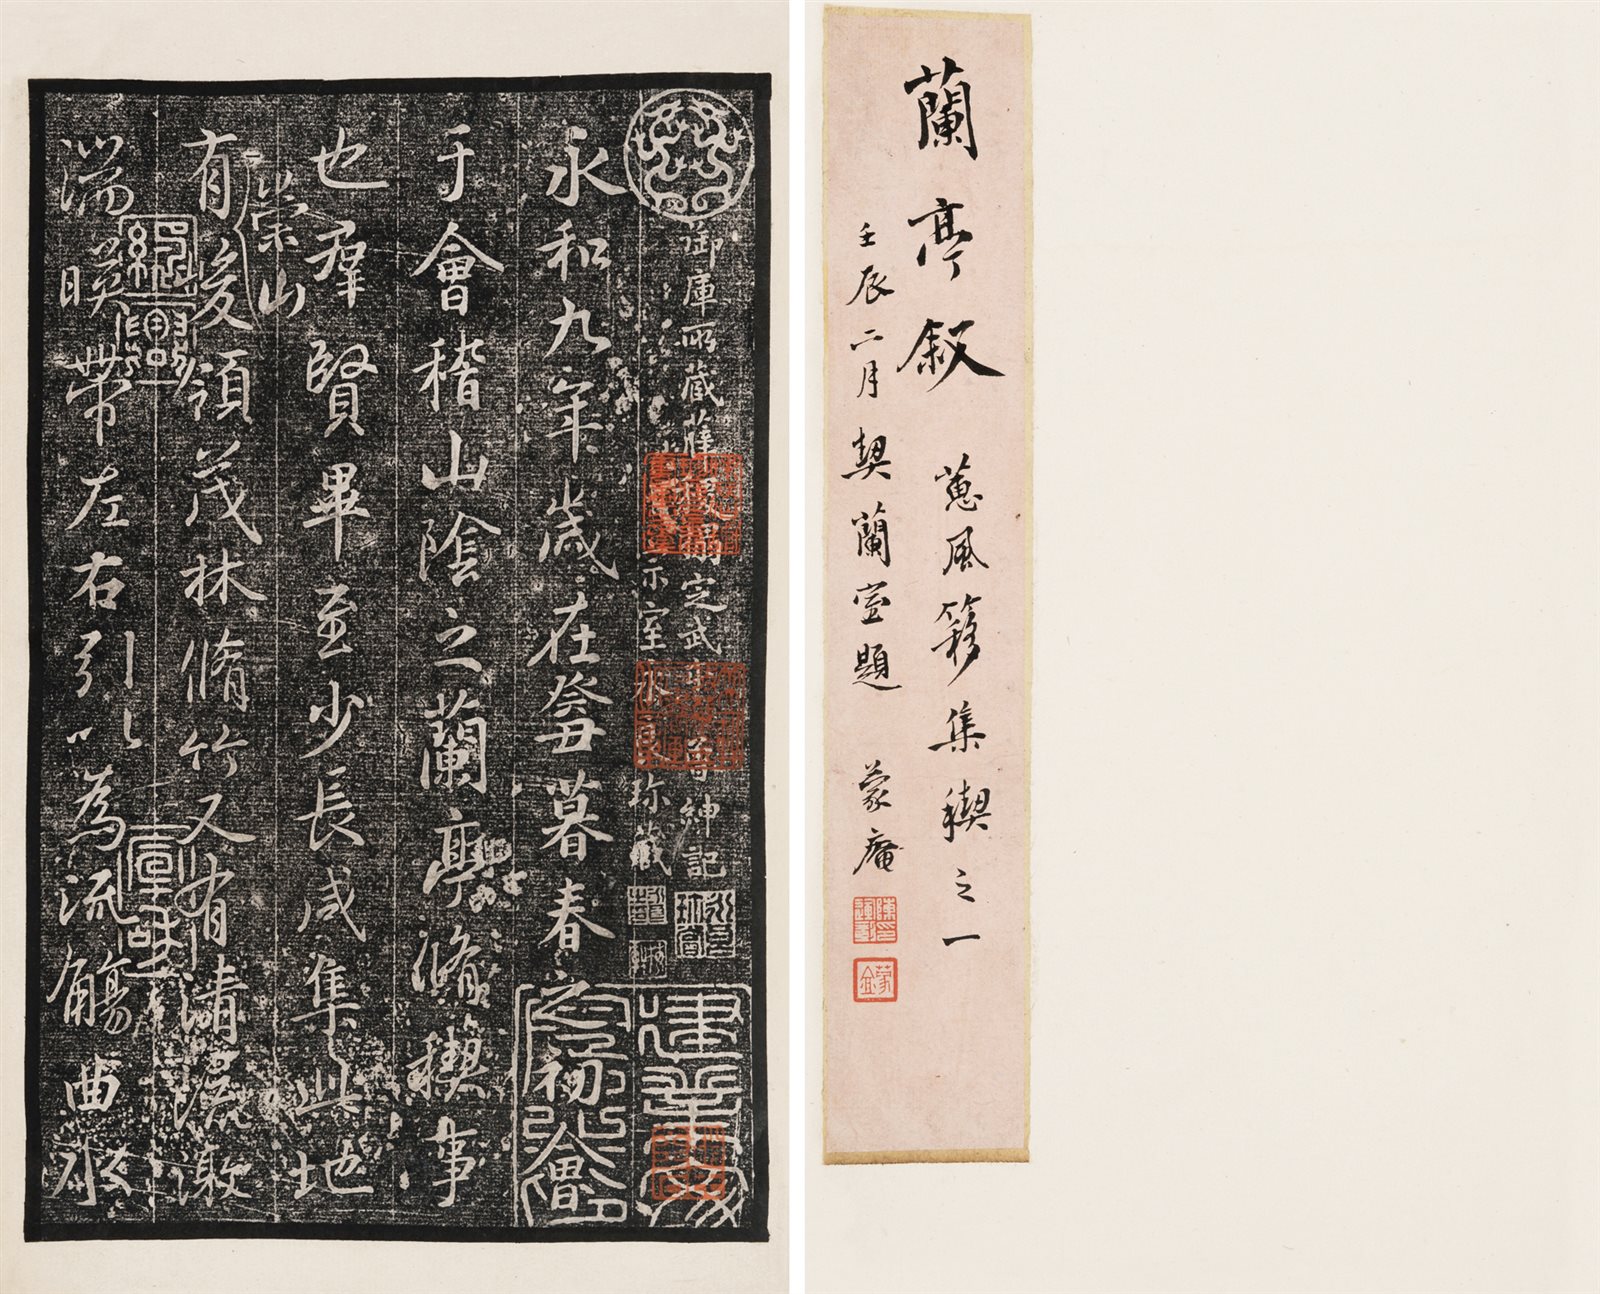 蘭亭敘 蕙風簃集禊之一
壬辰二月契蘭室題 蒙庵
御庫所藏薛 定武 紳記
示室 永 珍藏
永和九年歲在癸丑暮春之初會
于會稽山陰之蘭亭脩禊事
也羣賢畢至少長咸集此地
有崇山峻領茂林脩竹又有清流激
湍暎帶左右引以為流觴曲水